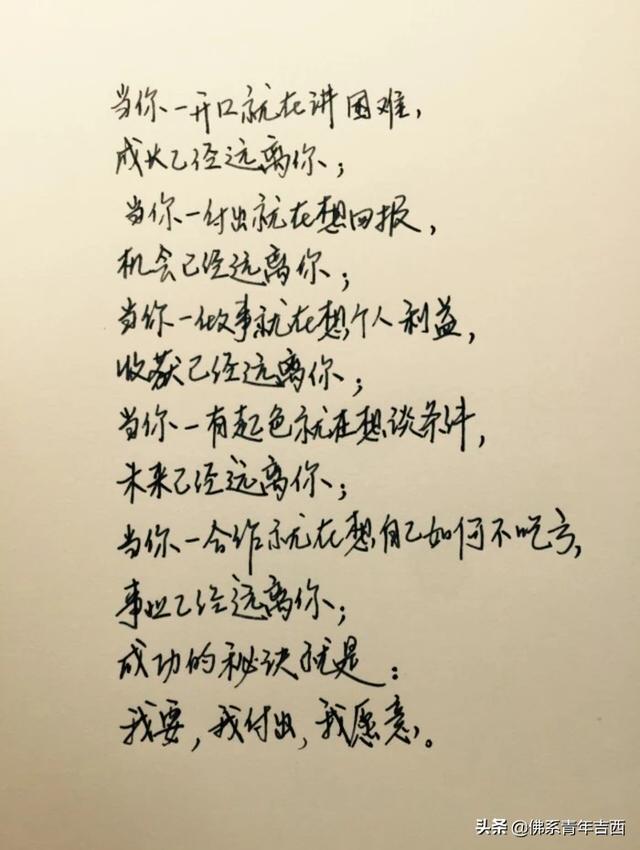 当你一开口就在讲困难，
成长已经远离你；
当你一付出就在想回报，
机会已经远离你；
当你一做事就在想个人利益，
收获已经远离你；
当你一有起色就在想谈条件，
未来已经远离你；
当你一合作就在想自己如何不吃亏，
事业已经远离你；
成功的秘诀就是：
我要，我付出，我愿意。
头条 @佛系青年吉西